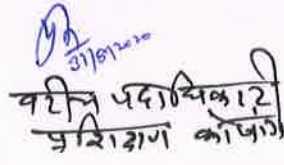 31/8/2020
वरीय पदाधिकारी
प्रशिक्षण कोषांग